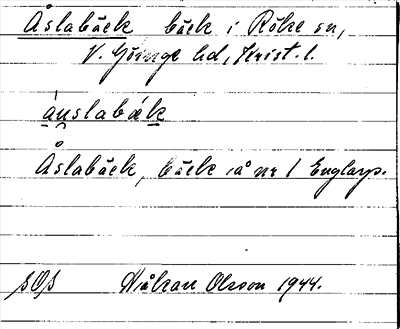 Åslabäck bäck i Röke sn,
V. Göinge hd, Krist. l.
áu̯slabæk
Åslabäck, bäck på nr 1 Englarp.
SOS Håkan Olsson 1944.